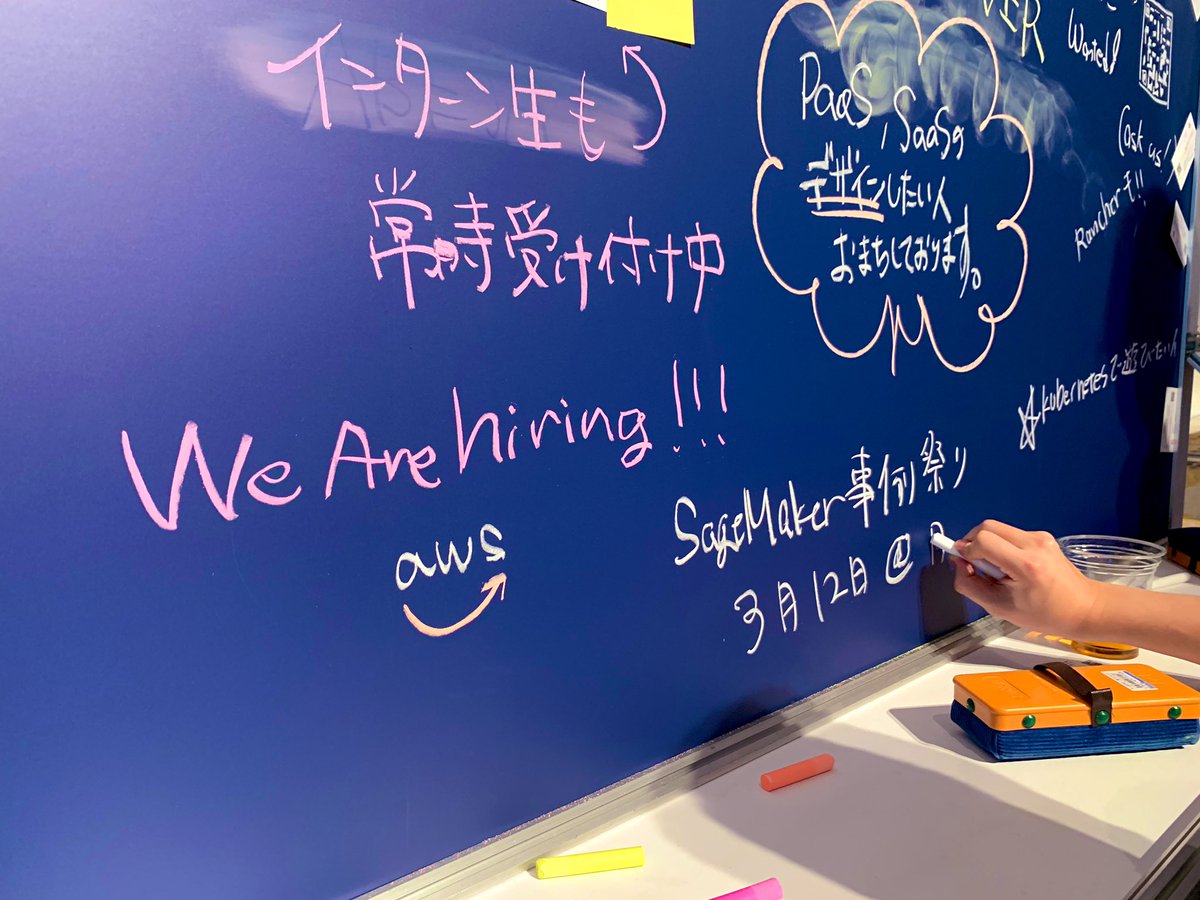 インターン生も
常時受け付け中
We Are hiring!!!
aws
PaaS, SaaSg
デザインしたい人
おまちしております。
SageMaker事例祭り
3月12日@
Wanted!
(ask us!)
Rancherも!!
☆kubernetesで遊びたい人